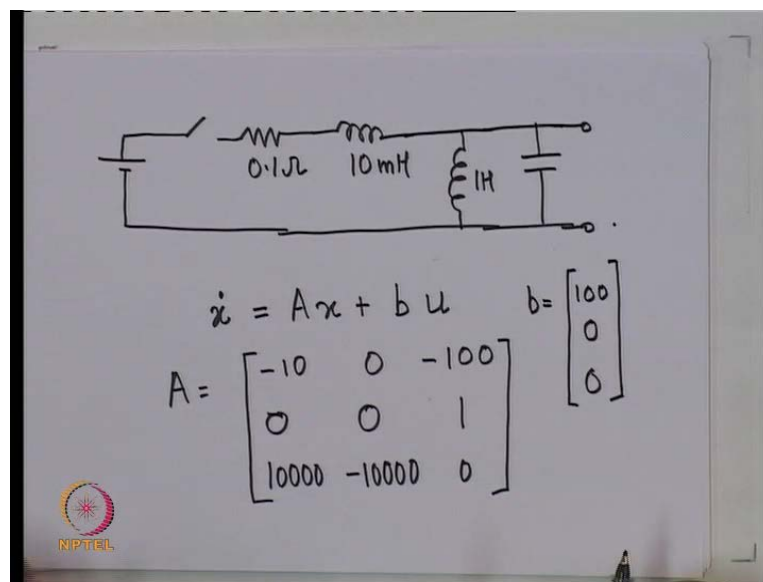 0.1Ω 10mH 1H
ẋ = Ax + b u
b = [100
0
0]
A = [-10 0 -100
0 0 1
10000 -10000 0]
NPTEL